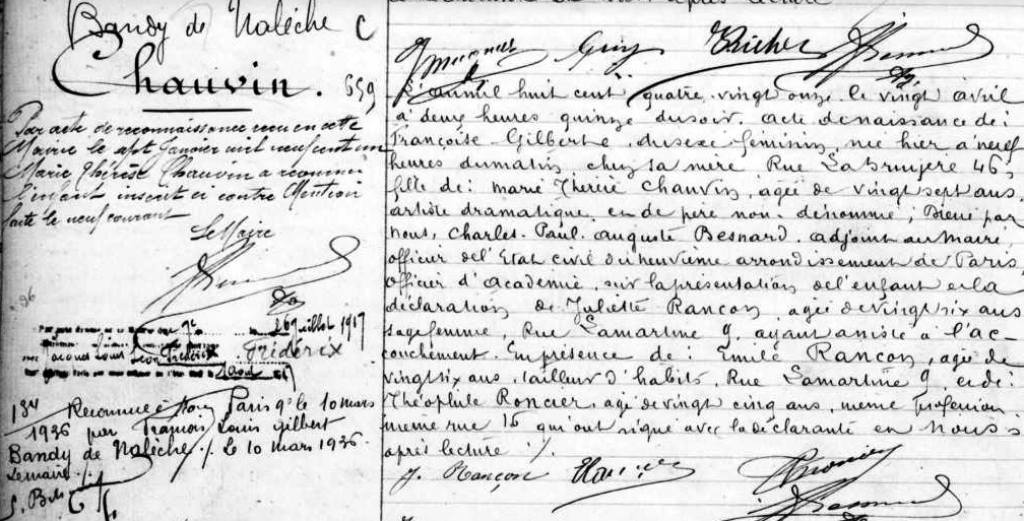 Bandy de Nalèche C
Chauvin. 659
Par acte de reconnaissance reçu en cette
Mairie le sept Janvier mil neuf cent un
Marie Thérèse Chauvin a reconnu
l'enfant inscrit ci contre Mention
faite le neuf courant
Le Maire
96
9e 26 juillet 1917
Jacques Louis Léon Frédérix Frédérix
1er août
134 Reconnue à Paris 9e le 10 mars
1936 par François Louis Gilbert
Bandy de Nalèche ./. Le 10 mars 1936.
Le maire ./.
L'an mil huit cent quatre vingt onze le vingt avril
à deux heures quinze du soir, acte de naissance de:
Françoise Gilberte, du sexe féminin, née hier à neuf
heures du matin chez sa mère Rue Labruyère 46,
fille de: Marie Thérèse Chauvin, agée de vingt sept ans
artiste dramatique, et de père non dénommé; Dressé par
nous, Charles Paul Auguste Besnard, adjoint au Maire,
officier de l'Etat civil du neuvième arrondissement de Paris,
officier d'Académie, sur la présentation de l'enfant et la
déclaration de Juliette Rançon agée de vingt six ans
sage femme, Rue Lamartine 9, ayant assisté à l'ac-
couchement. En présence de: Emile Rançon, agé de
vingt six ans, tailleur d'habits, Rue Lamartine 9, et de:
Théophile Roncier, agé de vingt cinq ans, même profession
même rue 16 qui ont signé avec la déclarante et Nous
après lecture ./.
J. Rançon Roncier